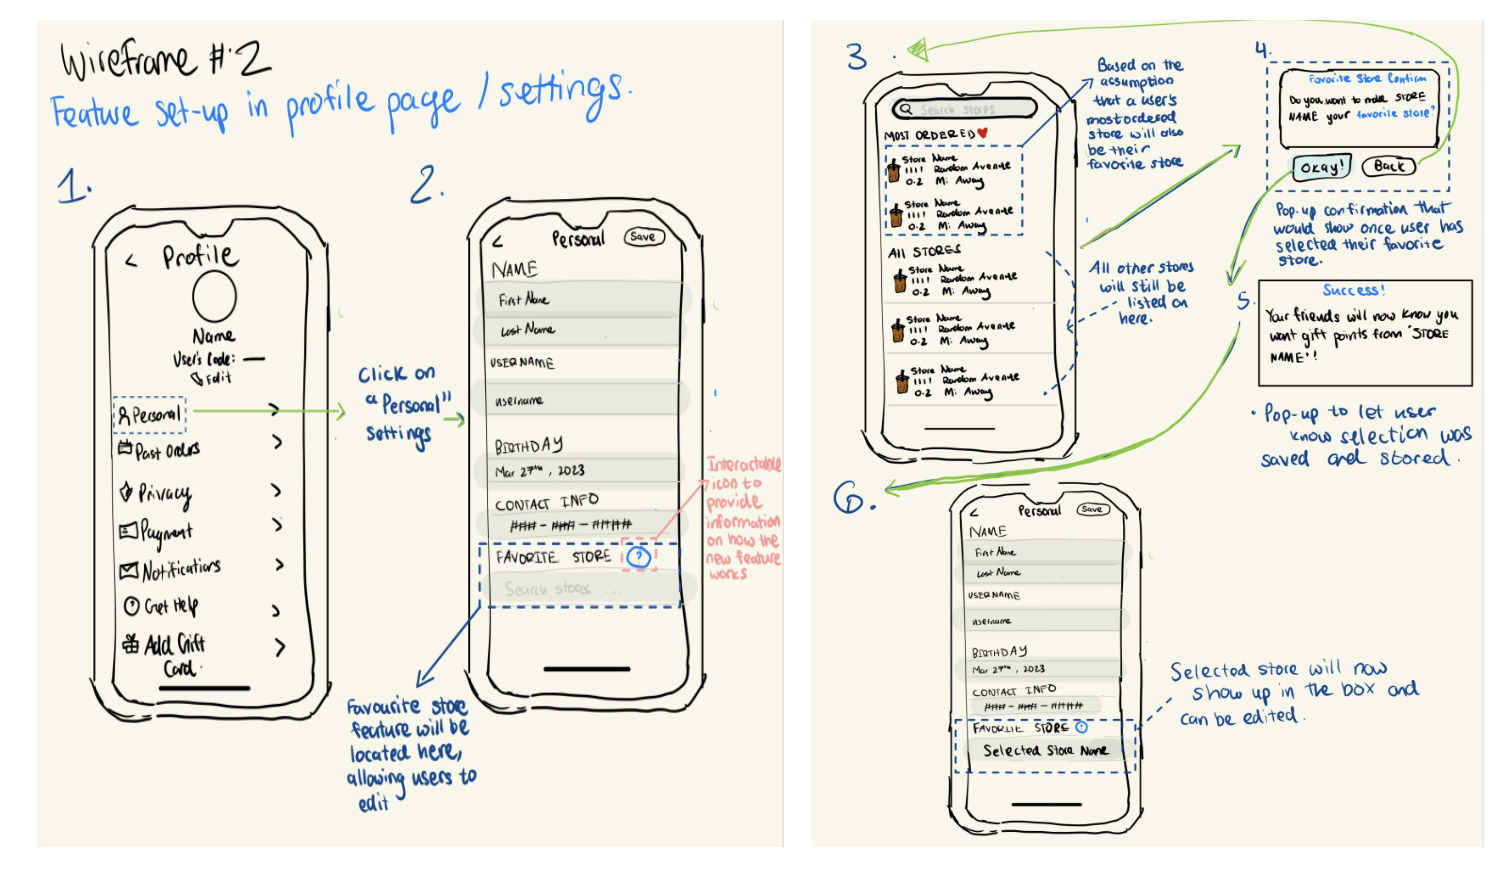 Wireframe #2
Feature set-up in profile page / settings.
1.
< Profile
Name
User's Code: —
Edit
Personal >
Past Orders >
Privacy >
Payment >
Notifications >
Get Help >
Add Gift >
Card.
Click on
"Personal"
settings
2.
< Personal Save
NAME
First Name
Last Name
USERNAME
username
BIRTHDAY
Mar 27th, 2023
CONTACT INFO
### - ### - ####
FAVORITE STORE ?
Search stores ....
Interactable
icon to
provide
information
on how the
new feature
works
Favourite store
feature will be
located here,
allowing users to
edit
3.
Search stores
MOST ORDERED ❤
Store Name
1111 Random Avenue
0.2 Mi Away
Store Name
1111 Random Avenue
0.2 Mi Away
All STORES
Store Name
1111 Random Avenue
0.2 Mi Away
Store Name
1111 Random Avenue
0.2 Mi Away
Store Name
1111 Random Avenue
0.2 Mi Away
Based on the
assumption
that a user's
most ordered
store will also
be their
favorite store
All other stores
will still be
listed on
here.
4.
Favorite Store Confirm
Do you want to make STORE
NAME your favorite store?
Okay! Back
Pop-up confirmation that
would show once user has
selected their favorite
store.
5.
Success!
Your friends will now know you
want gift points from "STORE
NAME"!
• Pop-up to let user
know selection was
saved and stored.
6.
< Personal Save
NAME
First Name
Last Name
USERNAME
username
BIRTHDAY
Mar 27th, 2023
CONTACT INFO
### - ### - ####
FAVORITE STORE ?
Selected Store Name
Selected store will now
show up in the box and
can be edited.